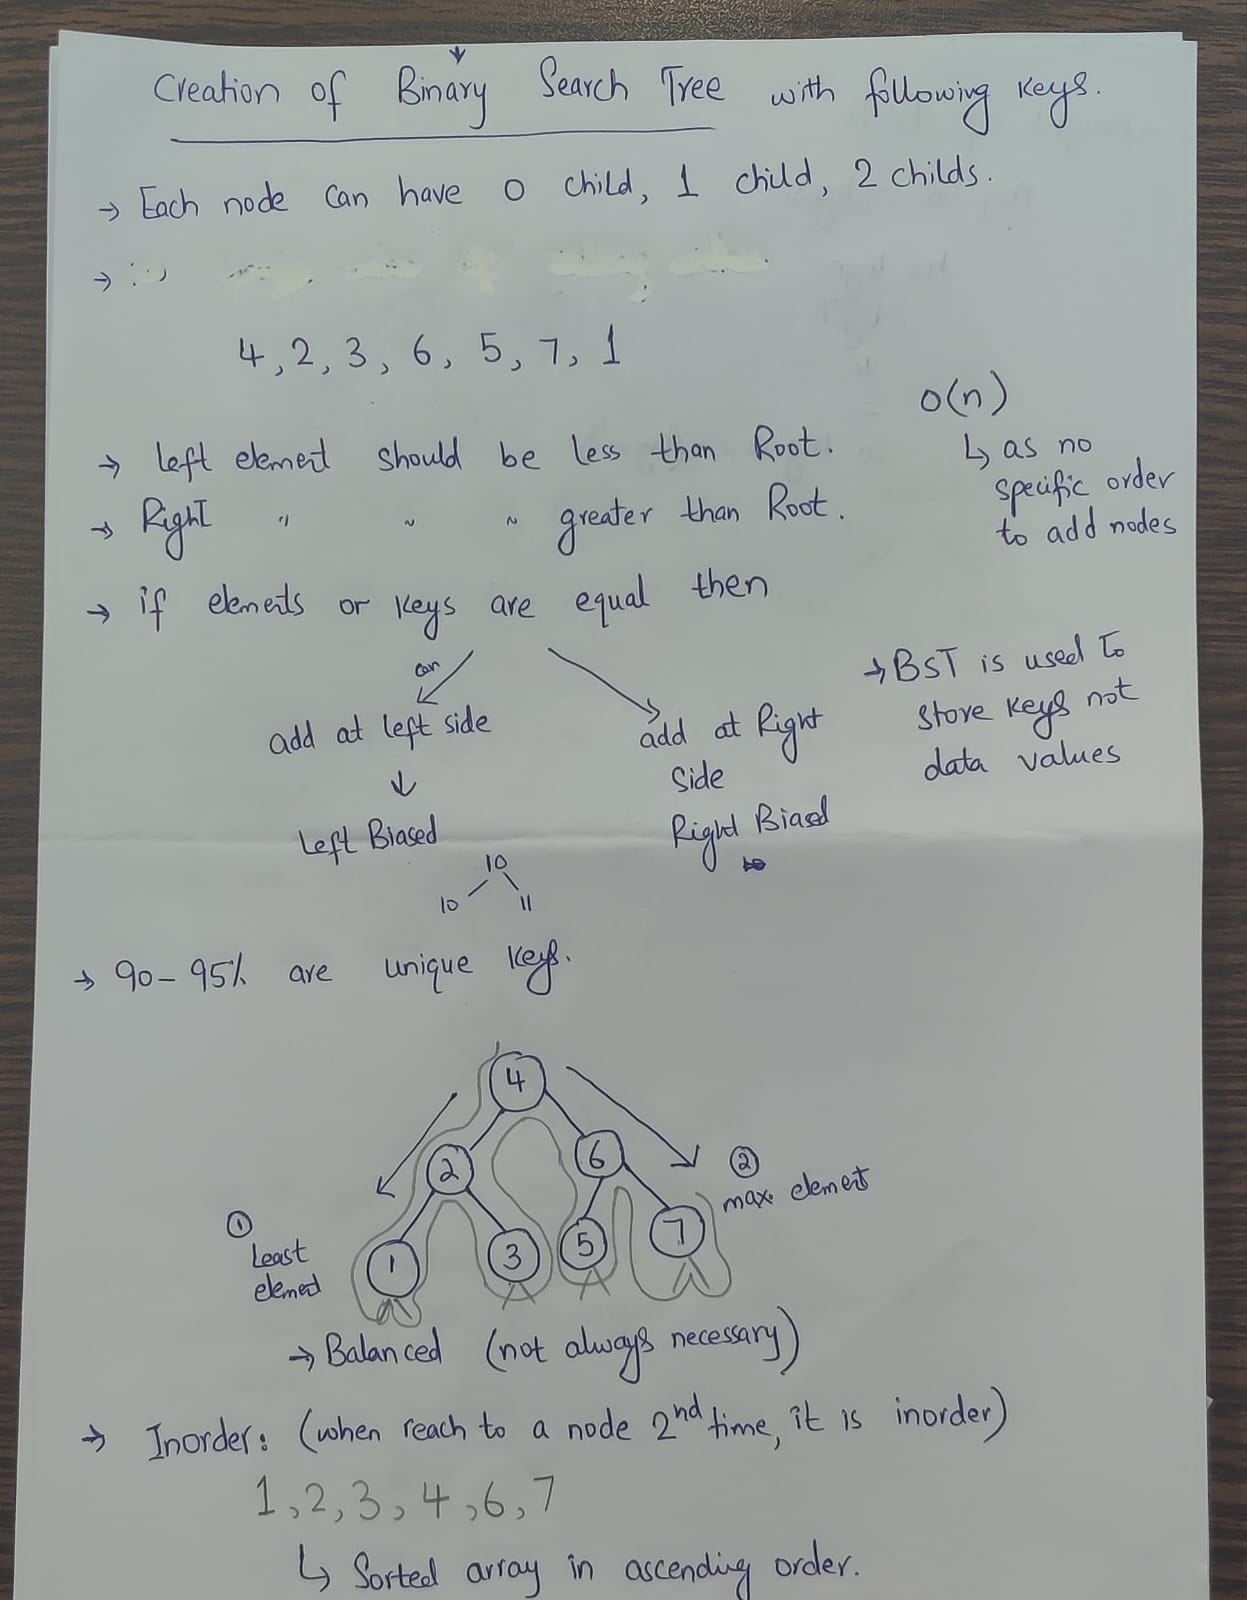 Creation of Binary Search Tree with following keys.
→ Each node can have 0 child, 1 child, 2 childs.
→
4, 2, 3, 6, 5, 7, 1
O(n)
↳ as no
specific order
to add nodes
→ left element should be less than Root.
→ Right " " " greater than Root.
→ if elements or keys are equal then
can
add at left side
↓
Left Biased
add at Right
side
Right Biased
→ BST is used to
store keys not
data values
10
10 11
→ 90-95% are unique keys.
4
2 6
1 3 5 7
①
Least
element
②
max element
→ Balanced (not always necessary)
→ Inorder: (when reach to a node 2nd time, it is inorder)
1, 2, 3, 4, 6, 7
↳ Sorted array in ascending order.